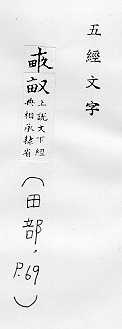 五經文字
上說文下經
典相承隸省
（田部，P.69）